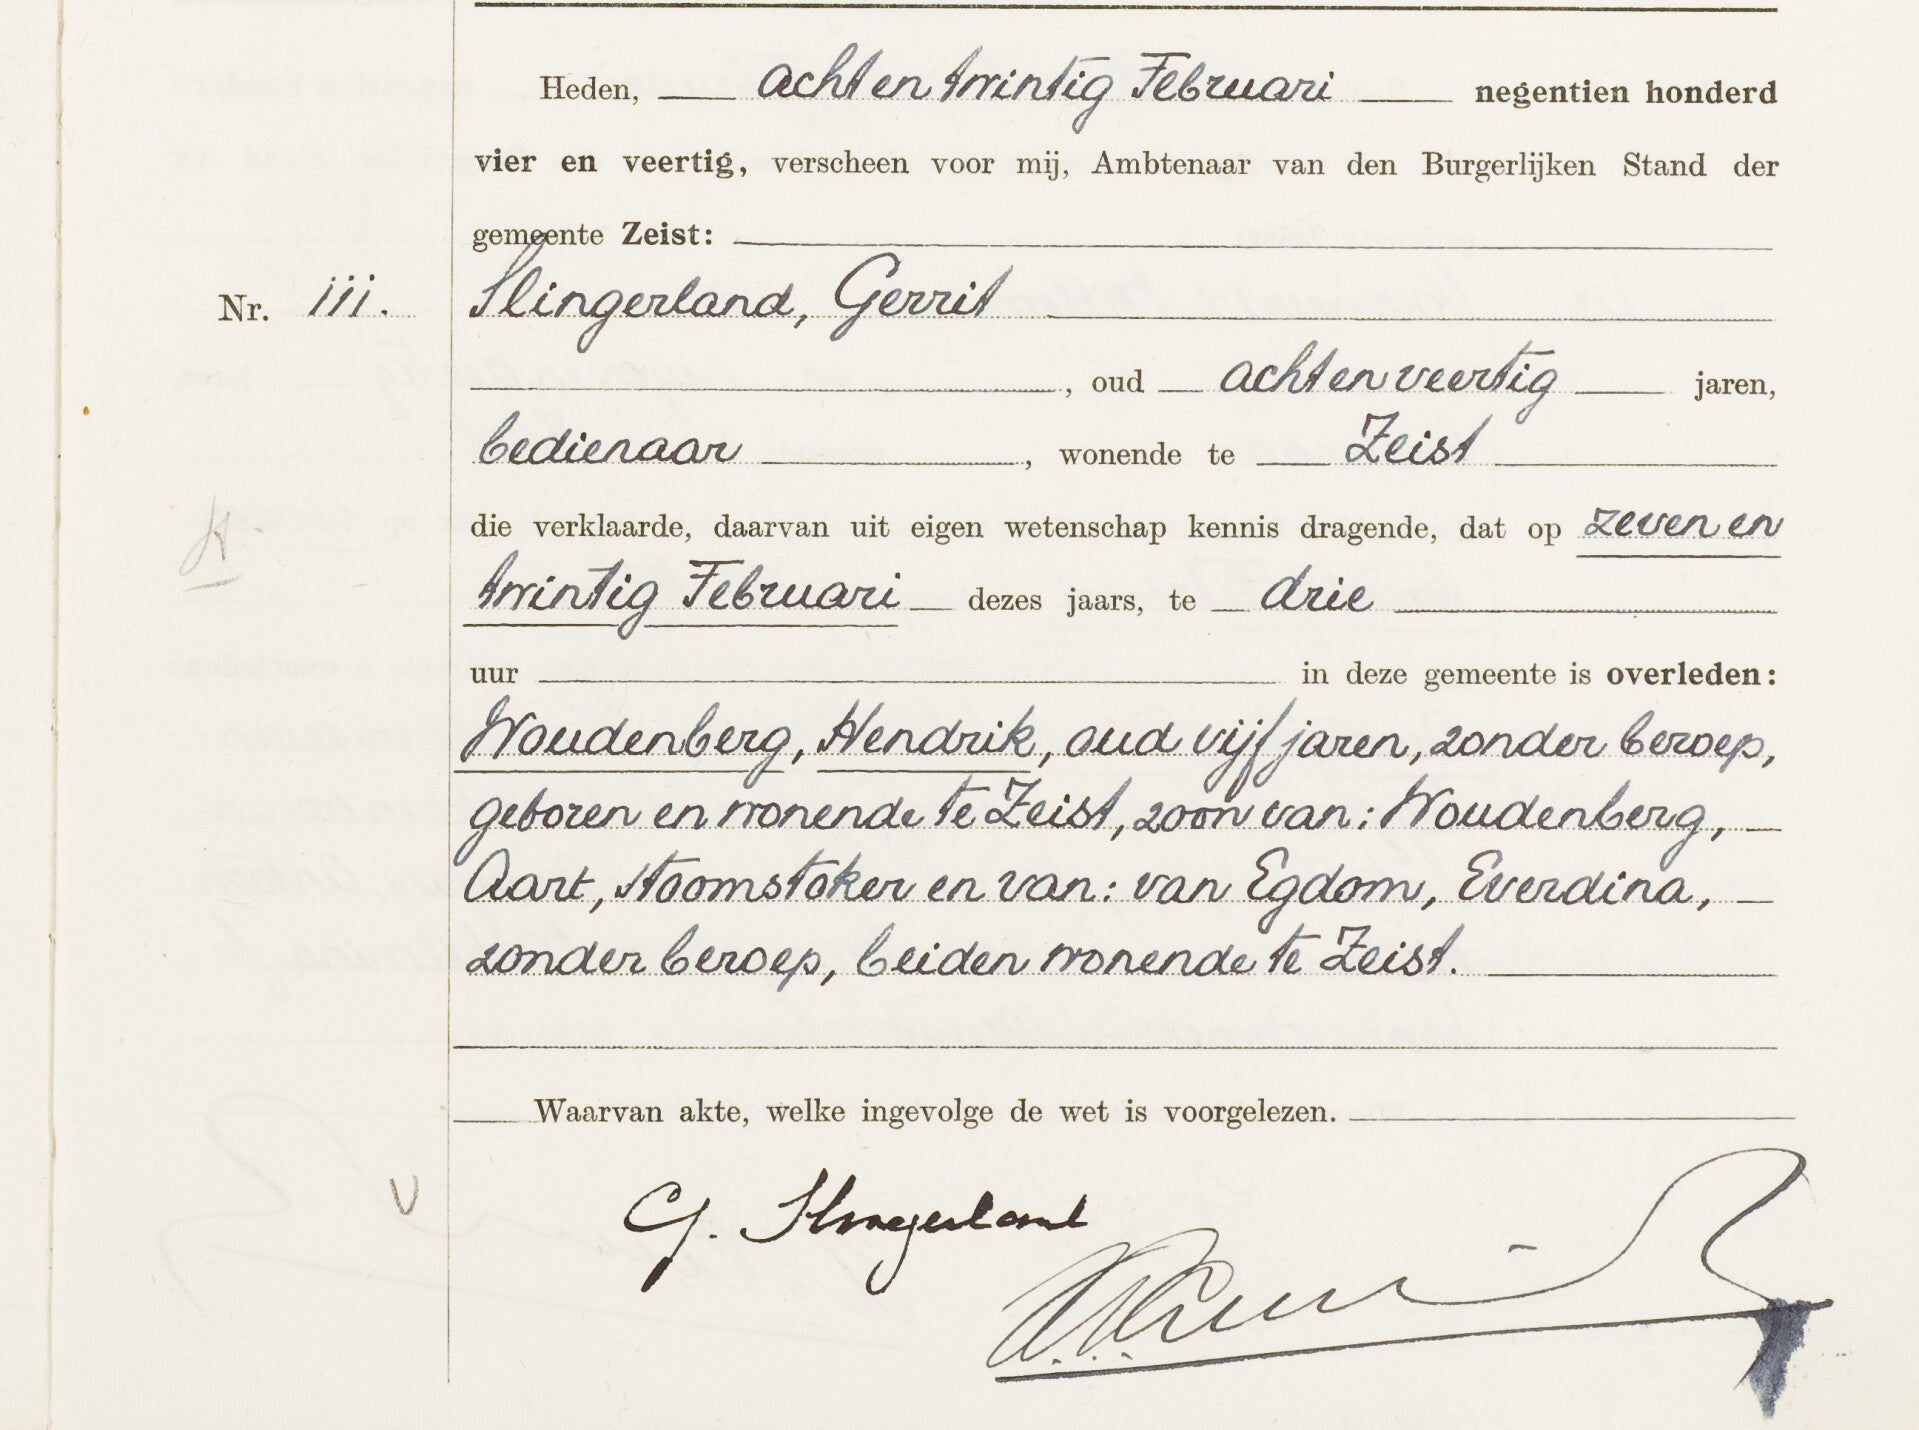 Heden, achtentwintig Februari negentien honderd
vier en veertig, verscheen voor mij, Ambtenaar van den Burgerlijken Stand der
gemeente Zeist:
Nr. 111. Slingerland, Gerrit
, oud achtenveertig jaren,
bedienaar, wonende te Zeist
die verklaarde, daarvan uit eigen wetenschap kennis dragende, dat op zeven en
twintig Februari dezes jaars, te drie
uur in deze gemeente is overleden:
Woudenberg, Hendrik, oud vijf jaren, zonder beroep,
geboren en wonende te Zeist, zoon van: Woudenberg,
Aart, stoomstoker en van: van Egdom, Everdina,
zonder beroep, beiden wonende te Zeist.
Waarvan akte, welke ingevolge de wet is voorgelezen.
G. Slingerland